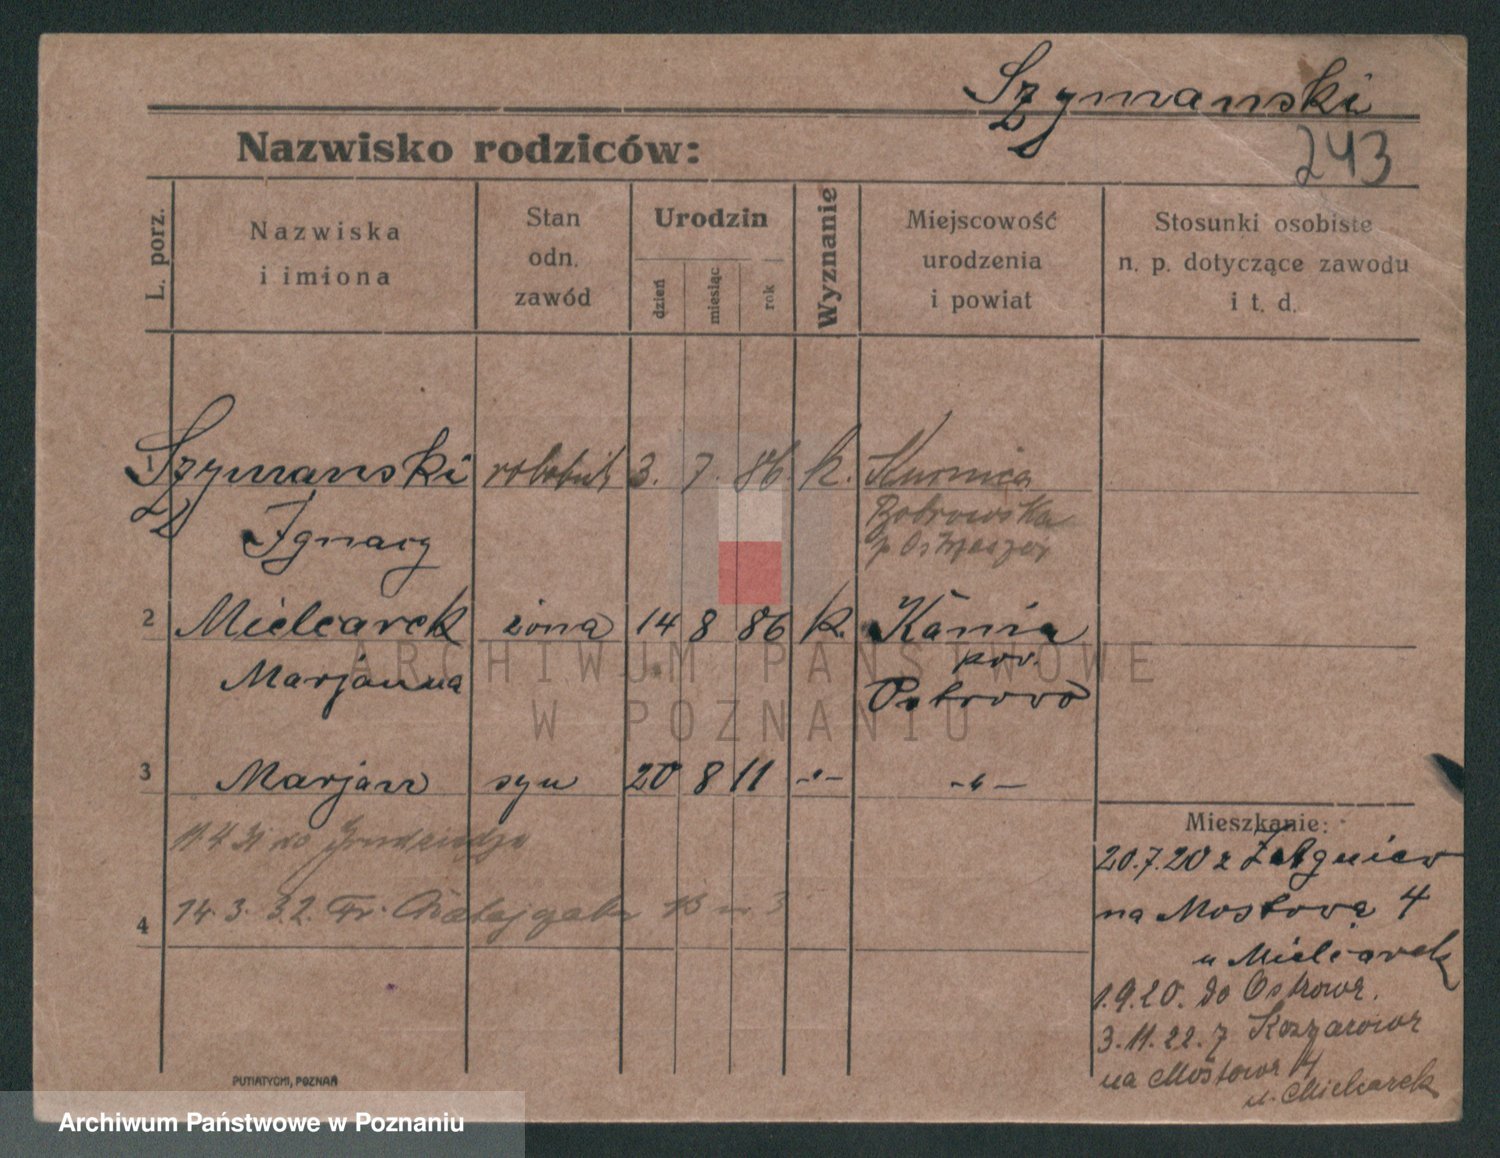 Szymanski
243
Nazwisko rodziców:
L. porz.
Nazwiska
i imiona
Stan
odn.
zawód
Urodzin
dzień
miesiąc
rok
Wyznanie
Miejscowość
urodzenia
i powiat
Stosunki osobiste
n. p. dotyczące zawodu
i t. d.
1 Szymanski robotnik 3. 7. 86. k. Kuznica
Ignacy Bobrowska
p Ostrzeszów
2 Mielcarek żona 14 8 86 k. Kania
Marjanna pow.
Ostrowo
3 Marjan syn 20 8 11 -"- -"-
11.4.31 do Grudziądza
4 14.3.32. Fr. Ratajczaka 13 m 3
Mieszkanie:
20.7.20 z
na Mostowa 4
u Mielcarek
1.9.20. do Ostrowa.
3.11.22. z
na Mostowa 4
u. Mielcarek
PUTIATYCKI, POZNAŃ
ARCHIWUM PAŃSTWOWE
W POZNANIU
Archiwum Państwowe w Poznaniu